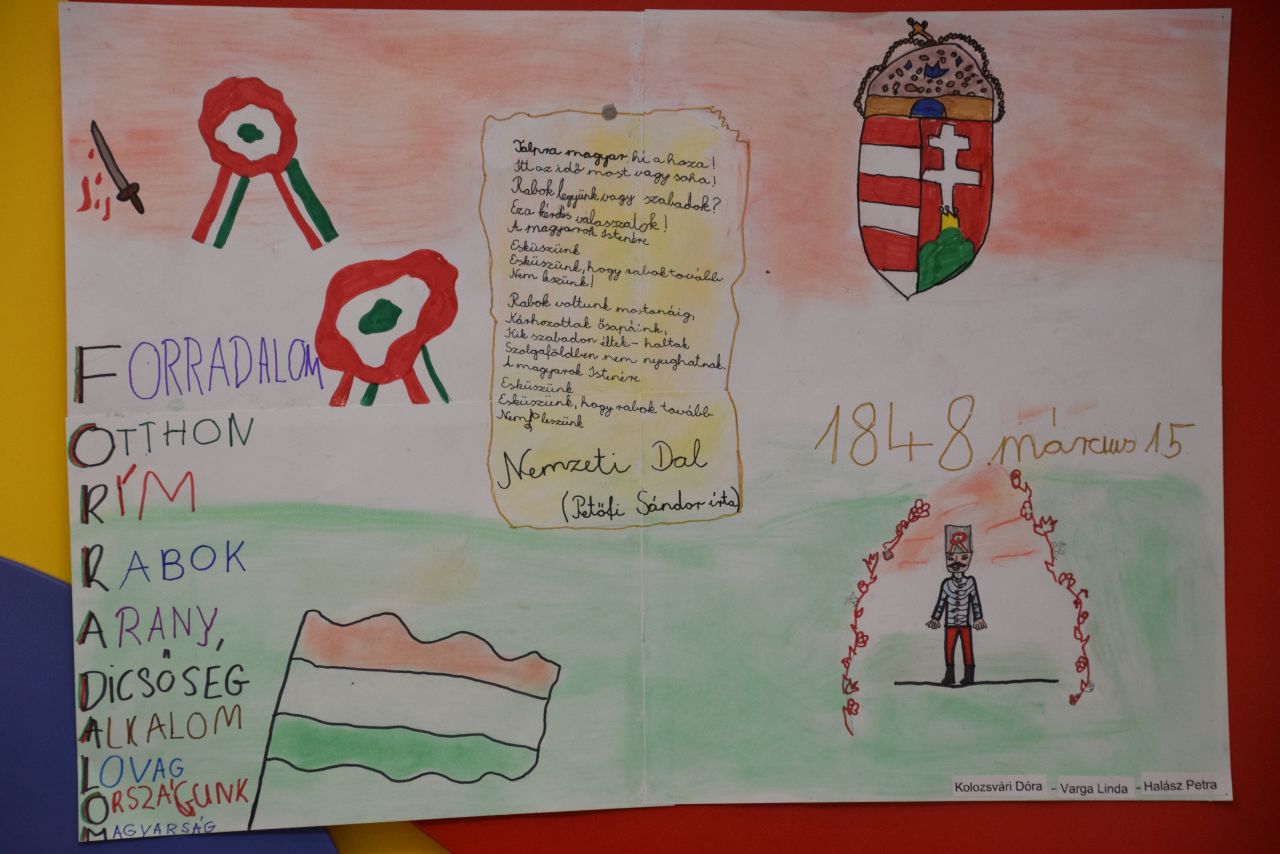 FORRADALOM
OTTHON
RÍM
RABOK
ARANY,
DICSŐSÉG
ALKALOM
LOVAG
ORSZÁGUNK
MAGYARSÁG
Talpra magyar hí a haza!
Itt az idő most vagy soha!
Rabok legyünk vagy szabadok?
Ez a kérdés válasszatok!
A magyarok Istenére
Esküszünk
Esküszünk, hogy rabok tovább
Nem leszünk!
Rabok voltunk mostanáig,
Kárhozottak ősapáink,
Kik szabadon éltek-haltak
Szolgaföldben nem nyughatnak.
A magyarok Istenére
Esküszünk
Esküszünk, hogy rabok tovább
Nem leszünk
Nemzeti Dal
(Petőfi Sándor írta)
1848 március 15.
Kolozsvári Dóra - Varga Linda - Halász Petra